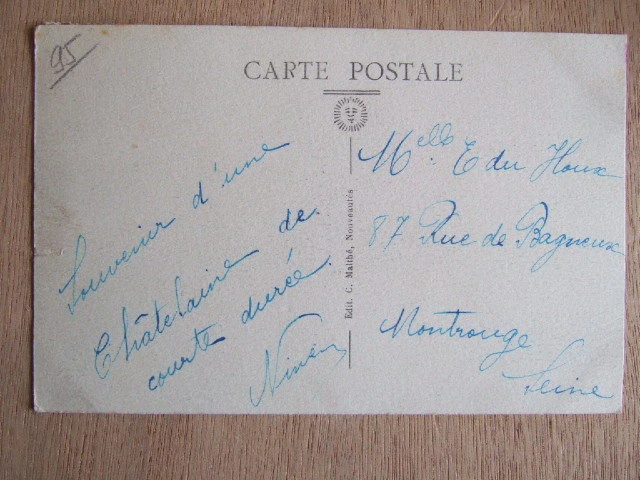 95
CARTE POSTALE
Souvenir d'une
Châtelaine de
courte durée.
Edit. C. Malthé, Nouveautés
Melle. E du Houx
87 Rue de Bagneux
Montrouge
Seine